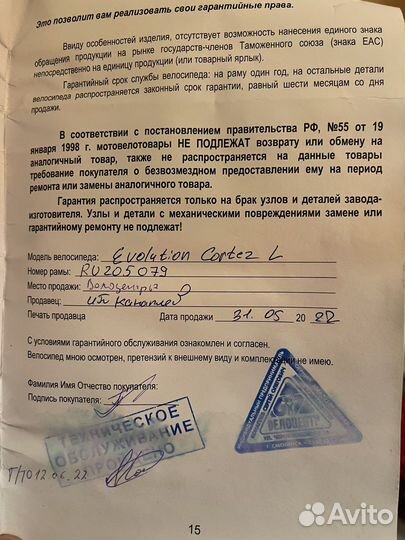 Это позволит вам реализовать свои гарантийные права.
Ввиду особенностей изделия, отсутствует возможность нанесения единого знака
обращения продукции на рынке государств-членов Таможенного союза (знака ЕАС)
непосредственно на единицу продукции (или товарный ярлык).
Гарантийный срок службы велосипеда: на раму один год, на остальные детали
велосипеда распространяется законный срок гарантии, равный шести месяцам со дня
продажи.
В соответствии с постановлением правительства РФ, №55 от 19
января 1998 г. мотовелотовары НЕ ПОДЛЕЖАТ возврату или обмену на
аналогичный товар, также не распространяется на данные товары
требование покупателя о безвозмездном предоставлении ему на период
ремонта или замены аналогичного товара.
Гарантия распространяется только на брак узлов и деталей завода-
изготовителя. Узлы и детали с механическими повреждениями замене или
гарантийному ремонту не подлежат!
Модель велосипеда: Evolution Cortez L
Номер рамы: RU205079
Место продажи: Велоцентр
Продавец: ИП
Печать продавца Дата продажи 31. 05 20 22
С условиями гарантийного обслуживания ознакомлен и согласен.
Велосипед мною осмотрен, претензий к внешнему виду и комплектации не имею.
Фамилия Имя Отчество покупателя:
Подпись покупателя:
ТЕХНИЧЕСКОЕ
ОБСЛУЖИВАНИЕ
ПРОЙДЕНО
ВЕЛОЦЕНТР
Г. СМОЛЕНСК
Т/ТО 12.06.22
15
Avito